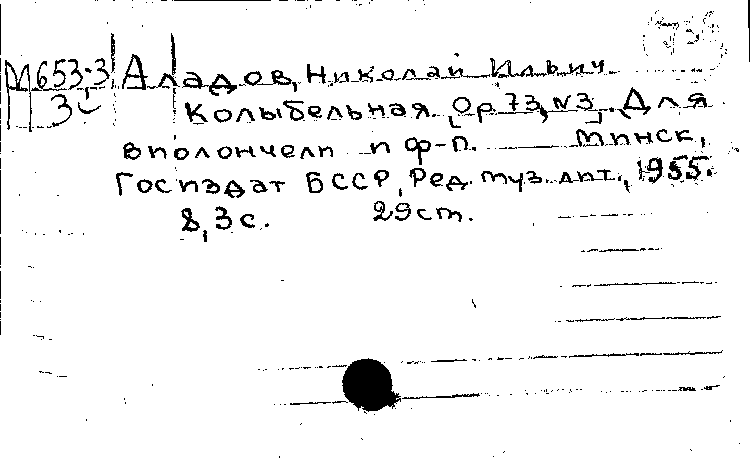 М653.3 Аладов, Николай Ильич
3 Колыбельная, Ор 73, №3. Для
виолончели и ф-п. Минск,
Госиздат БССР, Ред. муз. лит., 1955.
8, 3 с. 29 см.